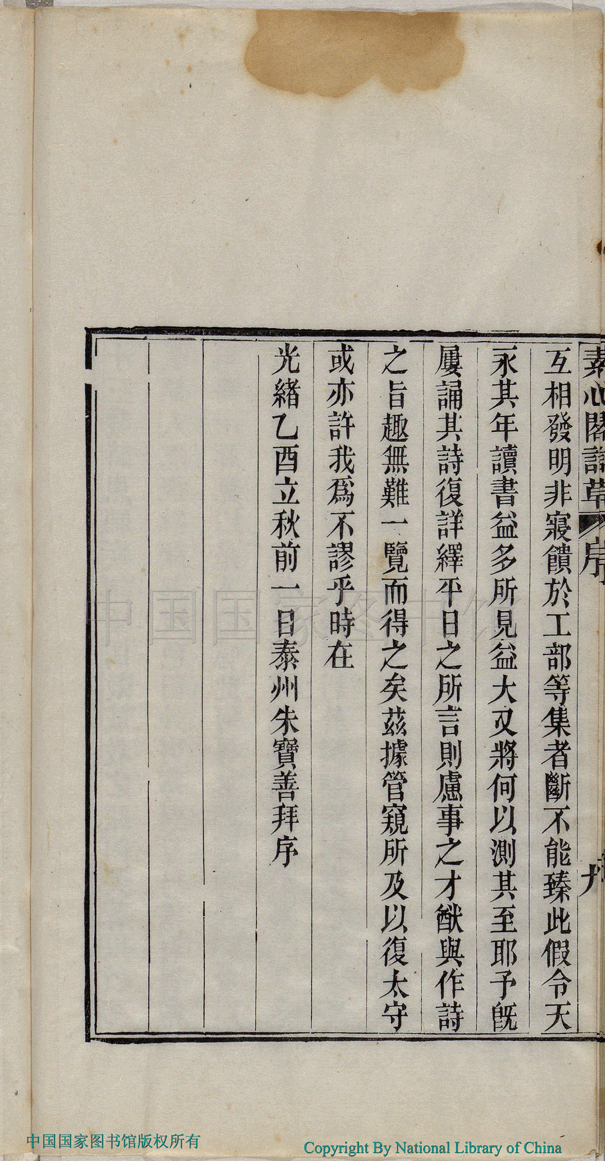 素心閣詩草 序
互相發明非寢饋於工部等集者斷不能臻此假令天
永其年讀書益多所見益大又將何以測其至耶予旣
屢誦其詩復詳繹平日之所言則慮事之才猷與作詩
之旨趣無難一覽而得之矣茲據管窺所及以復太守
或亦許我爲不謬乎時在
光緒乙酉立秋前一日泰州朱寶善拜序
中国国家图书馆
中国国家图书馆版权所有
Copyright By National Library of China